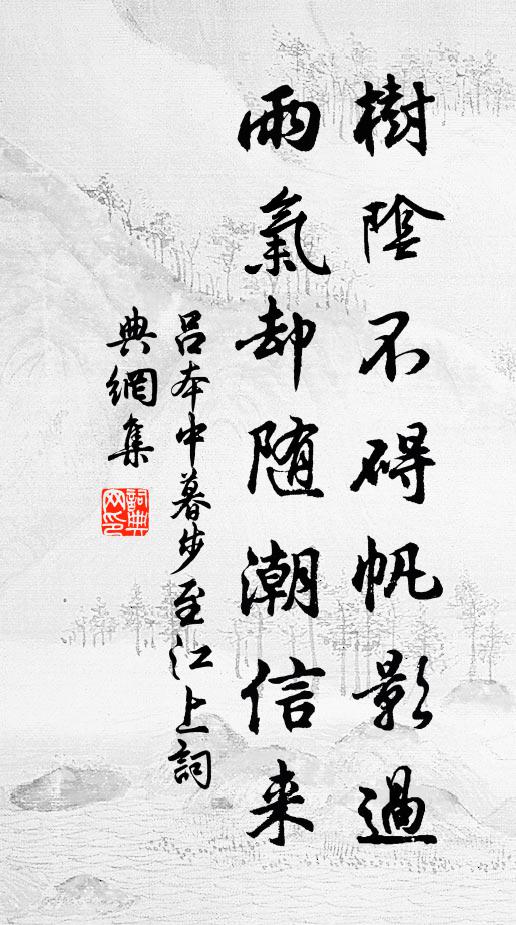 樹陰不碍帆影過
雨氣却随潮信来
呂本中暮步至江上詞
典網集
詞典網印